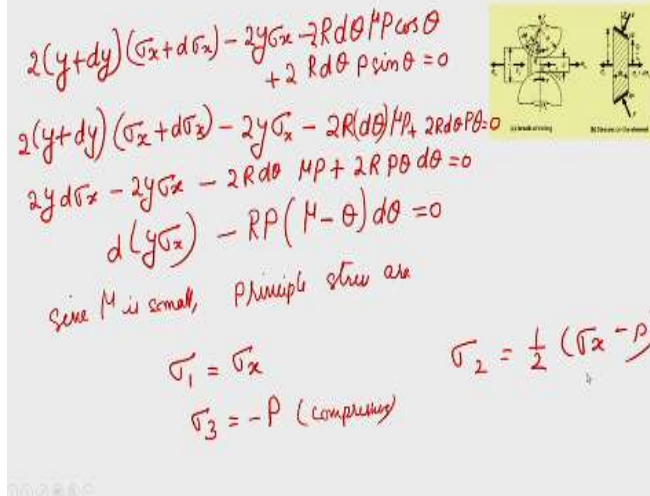 2(y+dy)(σx+dσx) - 2yσx - 2Rdθ μP cosθ
+ 2 Rdθ P sinθ = 0
2(y+dy)(σx+dσx) - 2yσx - 2R(dθ)μP + 2RdθPθ=0
2ydσx - 2yσx - 2Rdθ μP + 2R Pθ dθ = 0
d(yσx) - RP(μ-θ)dθ = 0
Sine μ is small, Principle stress are
σ1 = σx
σ2 = 1/2 (σx - P)
σ3 = -P (compressive)